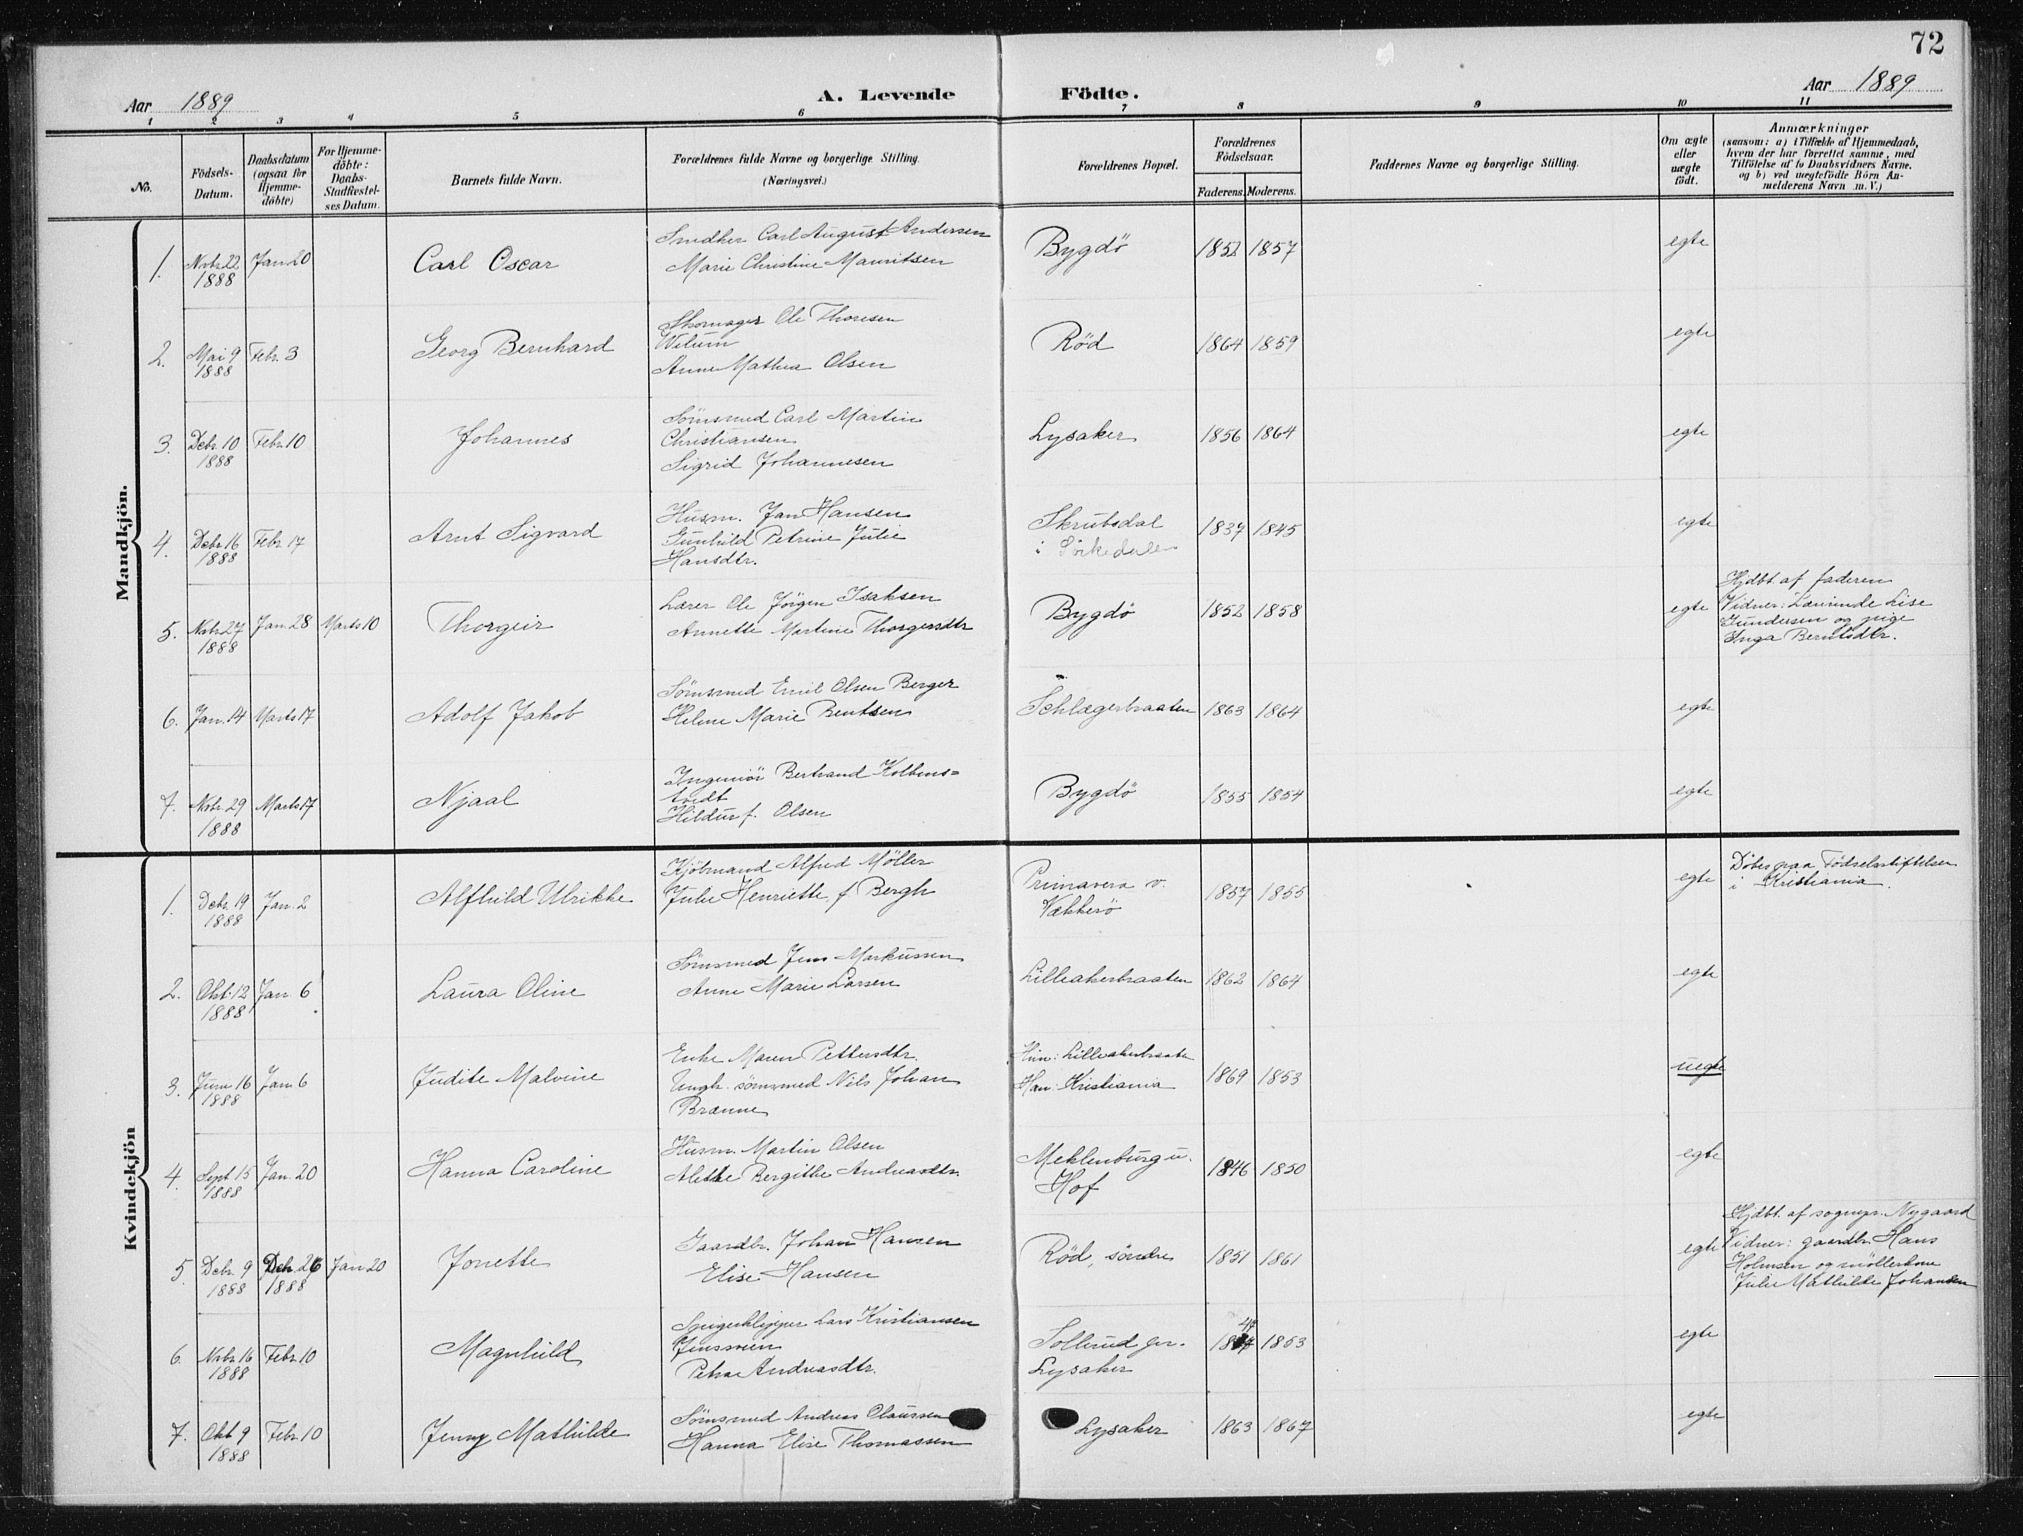 72
Aar 1889
A. Levende Födte.
Aar 1889
1 2 3 4 5 6 7 8 9 10 11
No.
Födsels-
Datum.
Daabsdatum
(ogsaa for
Hjemme-
döbte)
For Hjemme-
döbte:
Daabs-
Stadfæstel-
ses Datum.
Barnets fulde Navn.
Forældrenes fulde Navne og borgerlige Stilling.
(Næringsvei.)
Forældrenes Bopæl.
Forældrenes
Födselsaar.
Faderens. Moderens.
Faddernes Navne og borgerlige Stilling.
Om ægte
eller
uægte
födt.
Anmærkninger
(saasom: a) i Tilfælde af Hjemmedaab,
hvem der har forrettet samme, med
Tilföielse af to Daabsvidners Navne,
og b) ved uægtefödte Börn An-
melderens Navn m. V.)
Mandkjön.
1. Novbr. 22 1888 Jan. 20 Carl Oscar
Snedker Carl August Andersen
Marie Christine Mauritsen
Bygdö 1852 1857 egte
2. Mai 9 1888 Febr. 3 Georg Bernhard
Skomager Ole Thoresen
Anne Mathea Olsen
Rød 1864 1859 egte
3. Debr. 10 1888 Febr. 10 Johannes
Sömsmed Carl Martin
Christiansen
Sigrid Johannesen
Lysaker 1856 1864 egte
4. Debr. 16 1888 Febr. 17 Arnt Sigvard
Husm. Jan Hansen
Gunhild Petrine Julie
Hansdtr.
Skrubsdal
i Sörkedalen
1837 1845 egte
5. Novbr. 27 1888 Jan. 28 Marts 10 Thorgeir
Lærer Ole Jörgen Isaksen
Annette Martine Thorgersdtr
Bygdö 1852 1858 egte
Hjdbt. af faderen
Vidner: Lærerinde Lise
Gundersen og pige
Inga Berntsdtr.
6. Jan. 14 Marts 17 Adolf Jakob
Sömsmed Emil Olsen Berger
Helene Marie Bentsen
Schlagerbraaten 1863 1864 egte
7. Novbr. 29 1888 Marts 17 Njaal
Ingeniör Bertrand Kolbens=
tvedt
Hildur f. Olsen
Bygdö 1855 1854 egte
Kvindekjön
1. Debr. 19 1888 Jan. 2 Alfhild Ulrikke
Kjöbmand Alfred Möller
Julie Henriette f. Bergh
Primavera v.
Vækkerö
1857 1855 egte
Döbt paa Födselsstiftelsen
i Kristiania.
2. Okt. 12 1888 Jan. 6 Laura Oline
Sömsmed Jens Markussen
Anne Marie Larsen
Lilleakerbraaten 1862 1864 egte
3. Juni 16 1888 Jan. 6 Judite Malvine
Enke Maren Pettersdtr.
Ungk. sömsmed Nils Johan
Brænne
Hun: Lilleakerbraaten
Han: Kristiania
1869 1853 uegte
4. Sept. 15 1888 Jan. 20 Hanna Caroline
Husm. Martin Olsen
Alethe Bergitte Andreasdtr.
Meklenburg u.
Hof
1846 1850 egte
5. Debr. 9 1888 Debr. 26 1888 Jan 20 Jonette
Gaardbr. Johan Hansen
Elise Hansen
Rød, söndre 1851 1861 egte
Hjdbt. af sognepr. Nygaard
Vidner: gaardbr. Hans
Holmsen og möllerkone
Julie Mathilde Johansen
6. Novbr. 16 1888 Febr. 10 Magnhild
Spigerklipper Lars Kristiansen
Jensveen
Petra Andreasdtr.
Sollerud pr.
Lysaker
1847 1853 egte
7. Okt 9 1888 Febr. 10 Jenny Mathilde
Sömsmed Andreas Claussen
Hanna Elise Thomassen
Lysaker 1863 1867 egte